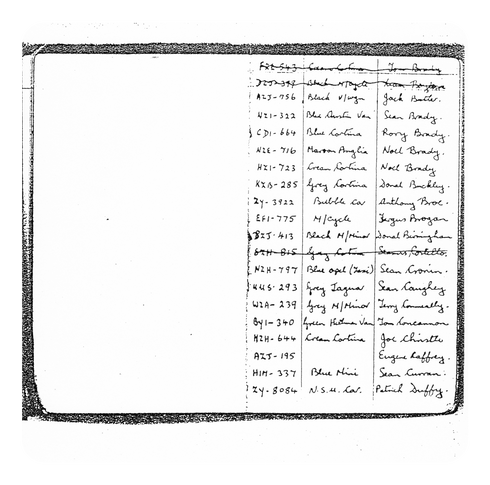 FRI-543 Cream Cortina Tom Brady
Black M/Cycle
AZJ-756 Black V/wgn Jack Butler.
NZI-322 Blue Austin Van Sean Brady.
CDI-664 Blue Cortina Rory Brady.
NZE-716 Maroon Anglia Noel Brady.
HZI-723 Cream Cortina Noel Brady
KZD-285 Grey Cortina Donal Buckley.
ZY-3922 Bubble Car Anthony Broc.
EFI-775 M/Cycle Fergus Brogan
BZJ-413 Black M/Minor Donal Birmingham
GZH-815 Grey Cortina Seamus Costello.
NZH-797 Blue Opel (Taxi) Sean Cronin.
KUS-293 Grey Jaguar Sean Caughey
WZA-239 Grey M/Minor Terry Conneally.
BYI-340 Green Hillman Van Tom Concannon
MZH-644 Cream Cortina Joe Christle
AZJ-195 Eugene Caffrey.
HIM-337 Blue Mini Sean Curran.
ZY-8084 N.S.U. Car. Patrick Duffy.